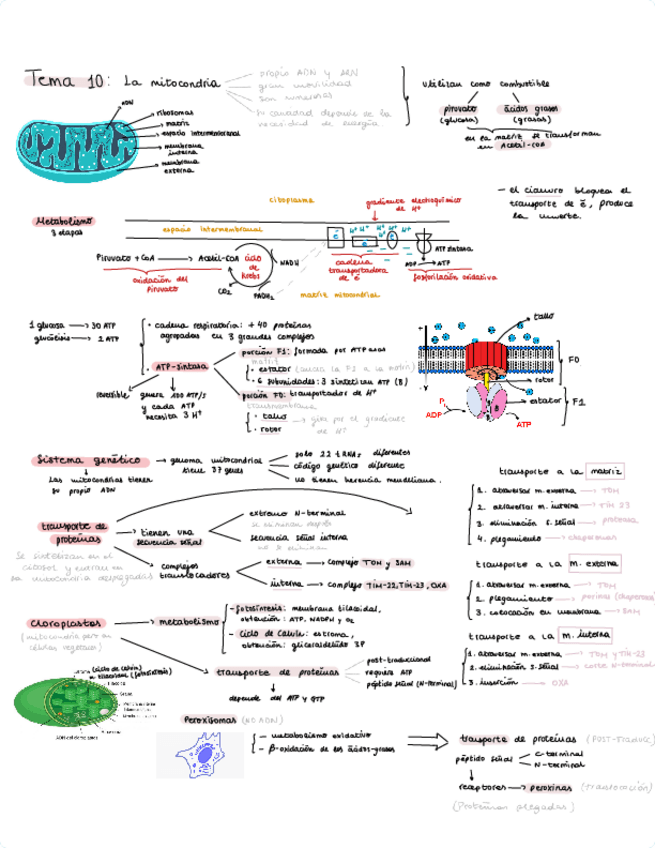 Tema 10: La mitocondria
propio ADN y ARN
gran movilidad
son numerosas
su cantidad depende de la
necesidad de energía
utilizan como combustible
piruvato
(glucosa)
ácidos grasos
(grasas)
en la matriz se transforman
en Acetil-CoA
ADN
ribosomas
matriz
espacio intermembranal
membrana
interna
membrana
externa
- el cianuro bloquea el
transporte de é, produce
la muerte.
citoplasma
gradiente electroquímico
de H+
Metabolismo
3 etapas
espacio intermembranal
H+ H+ H+ H+
ATP sintasa
Piruvato + CoA → Acetil-CoA
oxidación del
piruvato
ciclo
de
Krebs
NADH
CO2
FADH2
cadena
transportadora
de é
ADP → ATP
fosforilación oxidativa
matriz mitocondrial
1 glucosa → 30 ATP
glucólisis → 2 ATP
· cadena respiratoria: + 40 proteínas
agrupadas en 3 grandes complejos
· ATP-sintasa
reversible
genera 100 ATP/s
y cada ATP
necesita 3 H+
porción F1: formada por ATPasas
matriz
· estator (anclar la F1 a la matriz)
· 6 subunidades: 3 sintetizan ATP (B)
porción F0: transportador de H+
transmembrana
· tallo
· rotor
gira por el gradiente
de H+
tallo
F0
rotor
estator
F1
P
ADP
ATP
Sistema genético → genoma mitocondrial
tiene 37 genes
Las mitocondrias tienen
su propio ADN
solo 22 tRNAs diferentes
código genético diferente
no tienen herencia mendeliana.
transporte de
proteínas
Se sintetizan en el
citosol y entran en
la mitocondria desplegadas
tienen una
secuencia señal
extremo N-terminal
se eliminan después
secuencia señal interna
no se eliminan
complejos
translocadores
externa → complejo TOM y SAM
interna → complejo TIM-22, TIM-23, OXA
transporte a la matriz
1. atravesar m. externa → TOM
2. atravesar m. interna → TIM 23
3. eliminación s. señal → proteasa
4. plegamiento → chaperonas
transporte a la m. externa
1. atravesar m. externa → TOM
2. plegamiento → porinas (chaperonas)
3. colocación en membrana → SAM
transporte a la m. interna
1. atravesar m. externa → TOM y TIM-23
2. eliminación s. señal → corte N-terminal
3. inserción → OXA
Cloroplastos
(mitocondria pero en
células vegetales)
metabolismo
- fotosíntesis: membrana tilacoidal,
obtención: ATP, NADPH y O2
- ciclo de Calvin: estroma,
obtención: gliceraldehído 3P
transporte de proteínas
post-traduccional
requiere ATP
péptido señal (N-terminal)
depende del ATP y GTP
(ciclo de Calvin)
(fotosíntesis)
Peroxisomas (NO ADN)
- metabolismo oxidativo
- β-oxidación de los ácidos grasos
transporte de proteínas (POST-traducc
péptido señal
C-terminal
N-terminal
receptores → peroxinas (translocación)
(Proteínas plegadas)